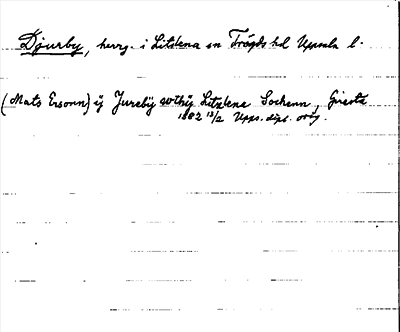 Djurby, herrg. i Litslena sn Trögds hd Uppsala l.
(Mats Ersonn) ij Jurebÿ wthÿ Litzlena Sochenn, Giestr
1582 13/2 Upps. dipl. orig.